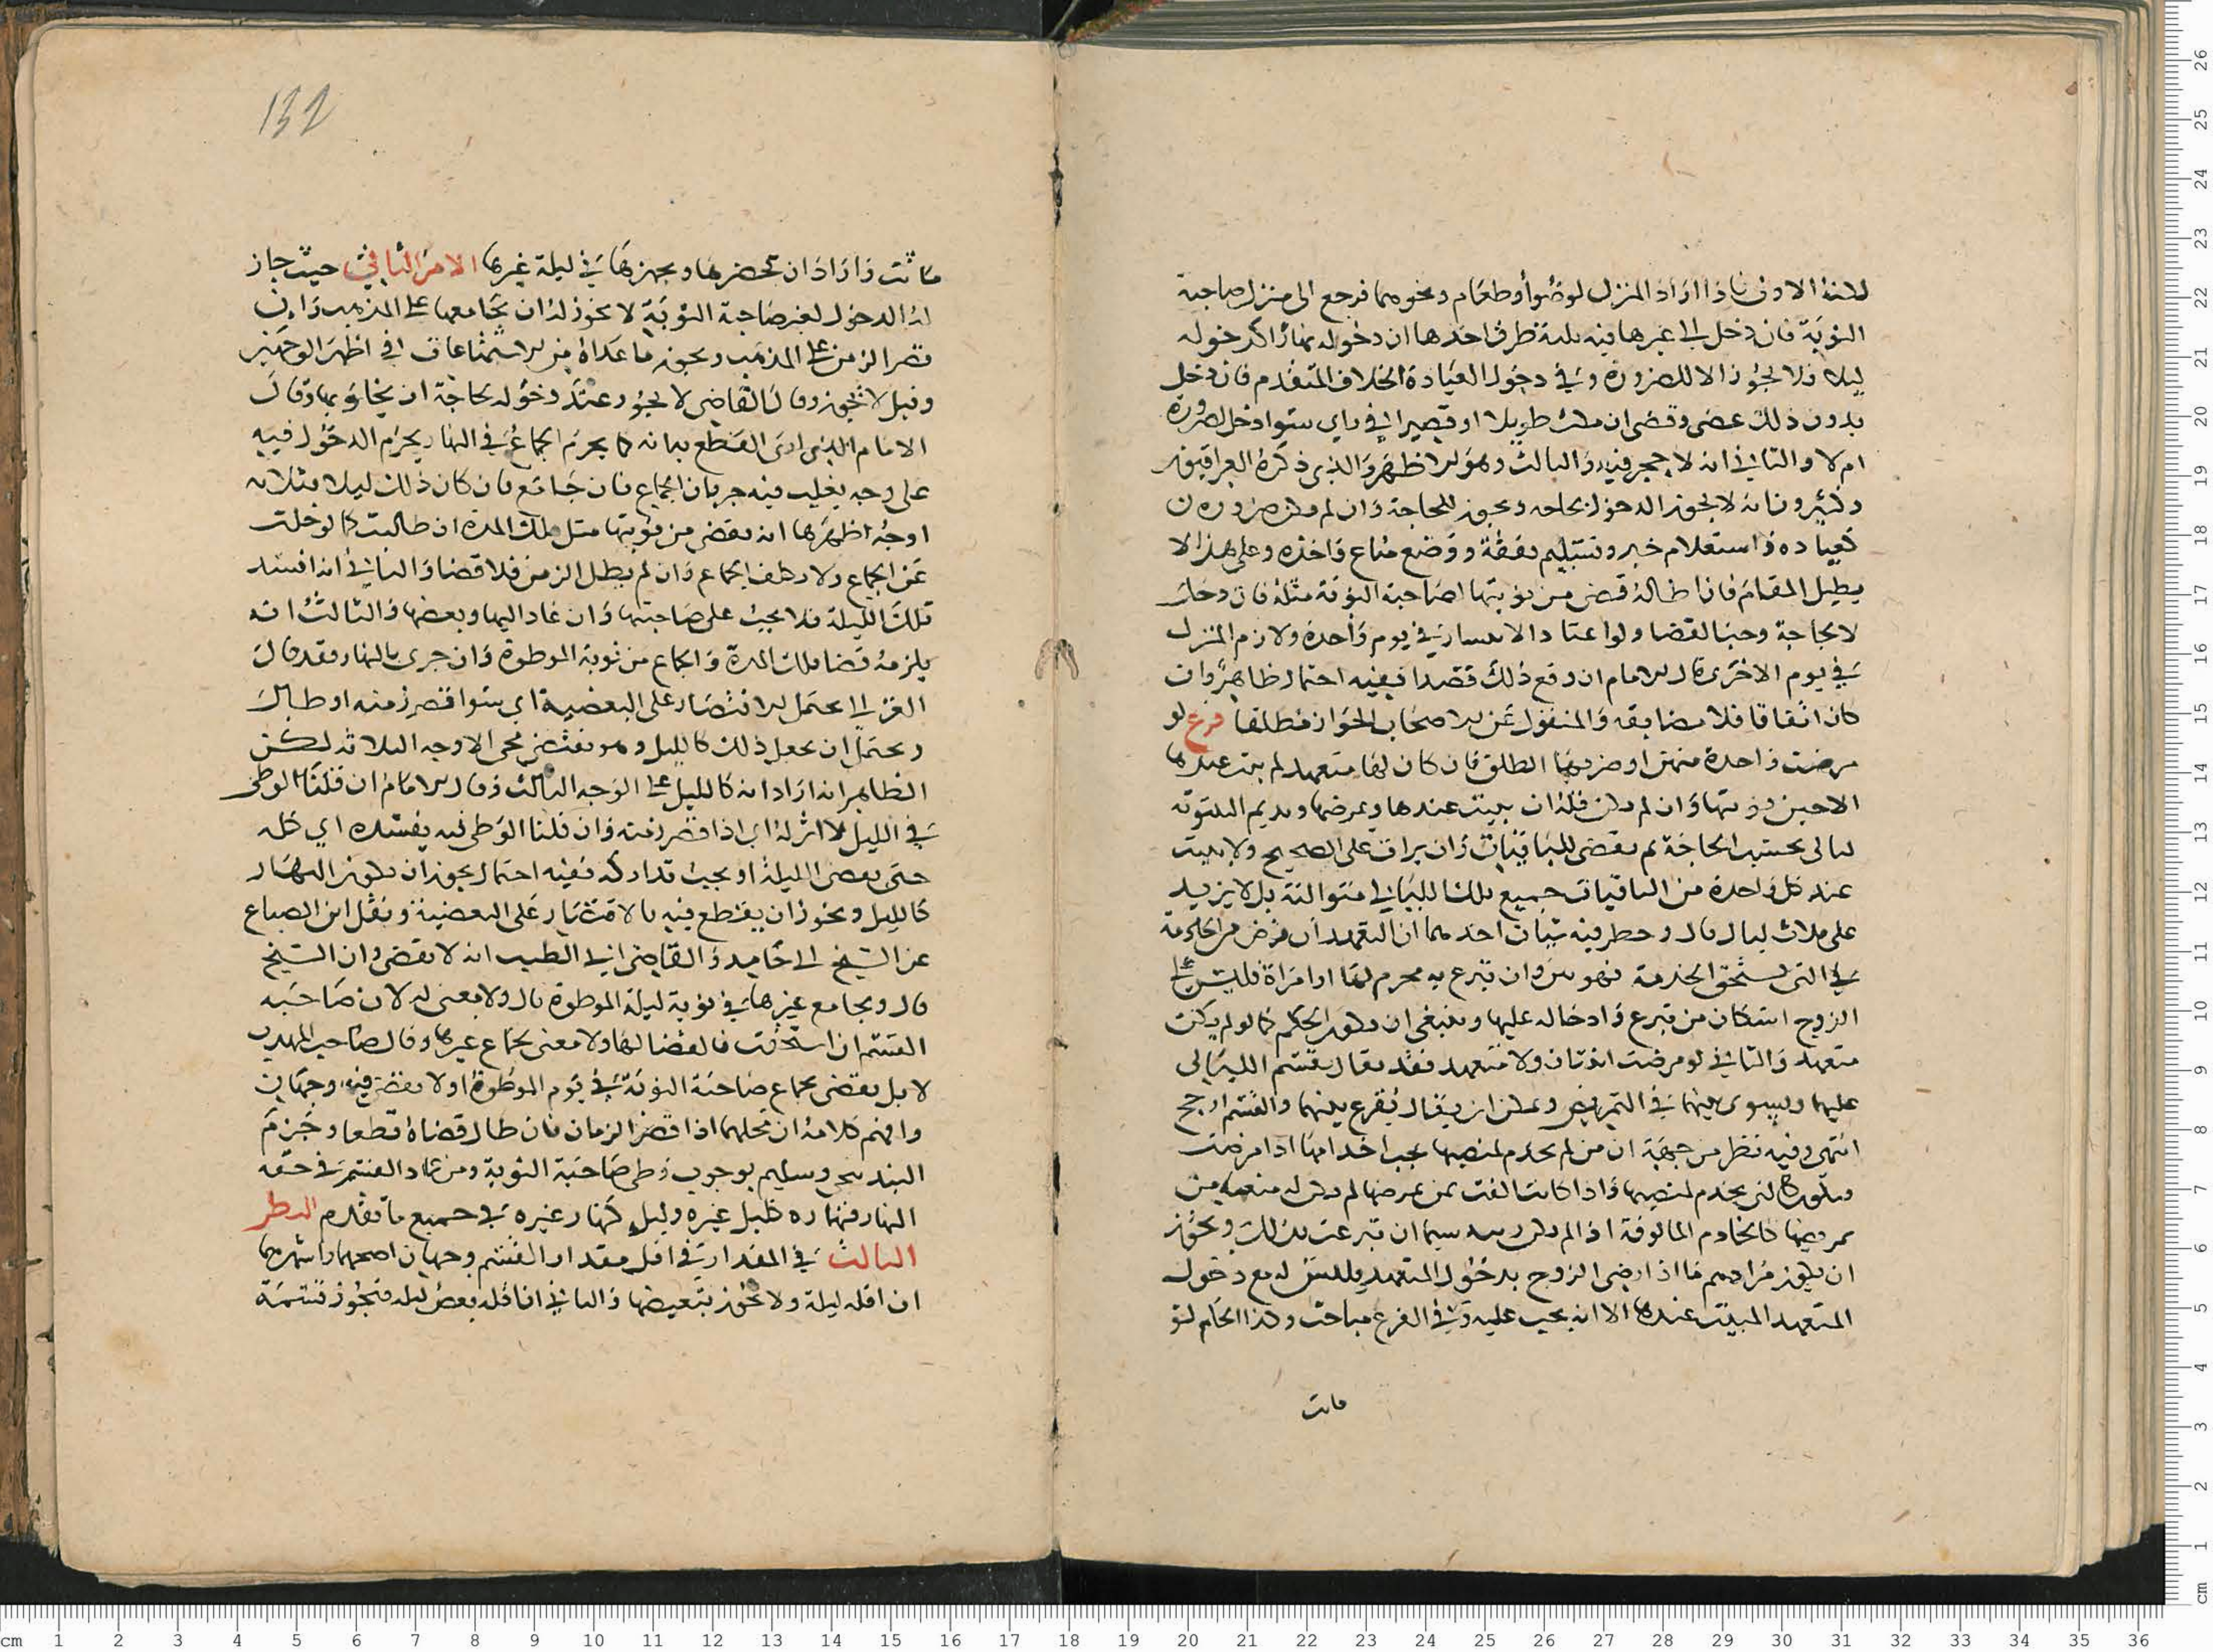 لكنه الاولى فاذا اراد المنزل لوضوأ وطعام ونحوهما فرجع الى منزل صاحبة
النوبة فان دخل الى غيرها فيه ثلاثة طرق احدها ان دخوله نهارًا كدخوله
ليلا فلا يجوز الا للضرورة وفي دخوله العيادة الخلاف المتقدم فان دخل
بدون ذلك عصى وقضى ان مكث طويلا او قصيرا في راي سوا دخل لضرورة
ام لا والثاني انه لا حجر فيه والثالث وهو الاظهر والذي ذكره العراقيون
وكثيرون انه لا يجوز الدخول لجماعه ويجوز للحاجة وان لم يكن ضرورة
كعيادة واستعلام خبر وتسليم نفقة ووضع متاع واخذه وعلى هذا لا
يطيل المقام فان اطاله قضى من نوبتها لصاحبة النوبة مثله فان دخل
لا لحاجة وجب القضا ولو اعتاد الانتشار في يوم واحدة ولازم المنزل
في يوم الاخرى قال الامام ان وقع ذلك قصدا ففيه احتمال ظاهر وان
كان اتفاقا فلا مضايقه والمنقول عن الاصحاب الجواز مطلقا فرع لو
مرضت واحدة منهن او ضربها الطلق فان كان لها متعهد لم يبت عندها
الا حين نوبتها وان لم يكن فله ان يبيت عندها ويمرضها ويديم البيتوته
ليالي بحسب الحاجة ثم يقضي للباقيات ان برات على الصحيح ولا يبيت
عند كل واحدة من الباقيات جميع تلك الليالي متوالية بل لا يزيد
على ثلاث ليال قال وخطر فيه شيان احدهما ان التعهد ان فرض من الخدمة
في التي تستحق الخدمة فهو من وان تبرع به محرم لها او امراة فليس على
الزوج اسكان من تبرع وادخاله عليها وينبغي ان يكون الحكم كما لو لم يكن
متعهد والثاني لو مرضت اثنتان ولا متعهد فقد يقال يقسم الليالي
عليهما ويسوى بينهما في التمريض ويمكن ان يقال يقرع بينهما والقسم ارجح
انتهى وفيه نظر من جهة ان من لم تخدم لمنصبها يجب اخدامها اذا مرضت
وتكون كالتي تخدم لمنصبها واذا كانت الفت من يمرضها لم يكن له منعها من
تمريضها كالخادم المالوفة اذا لم يكن ريبه سيما ان تبرعت بذلك ويجوز
ان يكون مرادهم ما اذا رضي الزوج بدخول المتعهد وليس له مع دخول
المتعهد المبيت عندها الا انه يجب عليه وفي الفرع مباحث وكذا الحكم لو
ماتت
ماتت واراد ان يحضرها ويجهزها في ليلة غيرها الامر الثاني حيث جاز
له الدخول لغير صاحبة النوبة لا يجوز له ان يجامعها على المذهب وان
قصر الزمن على المذهب ويجوز ما عداه من الاستمتاعات في اظهر الوجهين
وقيل لا يجوز وقال القاضي لا يجوز عند دخوله لحاجة ان يخلو بها وقال
الامام الذي ارى القطع به انه كما يحرم الجماع في النهار يحرم الدخول فيه
على وجه يغلب فيه جريان الجماع فان جامع فان كان ذلك ليلا فثلاثه
اوجه اظهرها انه يقضي من نوبتها مثل تلك المدة ان طالت كما لو خلت
عن الجماع ولا يكلف الجماع وان لم يطل الزمن فلا قضا والثاني انه افسد
تلك الليلة فلا تحسب على صاحبتها وان عاد اليها وبعضها والثالث انه
يلزمه قضا تلك المدة والجماع من نوبة الموطوة وان جرى بالنهار فقد قال
الغزالي يحتمل الاقتصار على التعصية اي سوا قصر زمنه او طال
ويحتمل ان يجعل ذلك كالليل وهو يقتضي مجي الاوجه الثلاثه لكن
الظاهر انه اراد انه كالليل على الوجه الثالث وقال الامام ان قلنا الوطي
في الليل لا اثر له اي اذا قصر زمنه وان قلنا الوطي فيه يفسده اي كله
حتى يقضى الليلة او يجب تداركه ففيه احتمال يجوز ان يكون النهار
كالليل ويجوز ان يقطع فيه بالاقتصار على التعصية ونقل ابن الصباغ
عن الشيخ ابي حامد والقاضي ابي الطيب انه لا يقضى وان الشيخ
قال ويجامع غيرها في نوبة ليلة الموطوة قال ولا معنى له لان صاحبه
القسم ان استحقت فالقضا لها ولا معنى لجماع غيرها وقال صاحب المهذب
لا بل يقضي بجماع صاحبة النوبة في يوم الموطوة او لا يقضي فيه وجهان
وافهم كلامه ان محلهما اذا قصر الزمان فان طال قضاه قطعا وجزم
البندنيجي وسليم بوجوب وطي صاحبة النوبة ومن عماد القسم في حقه
النهار فنهاره كليل غيره وليله كنهار غيره في جميع ما تقدم النظر
الثالث في المقدار في اقل مقدار القسم وجهان اصحهما واشهرهما
ان اقله ليلة ولا يجوز تبعيضها والثاني ان اقله بعض ليله فتجوز قسمة
132